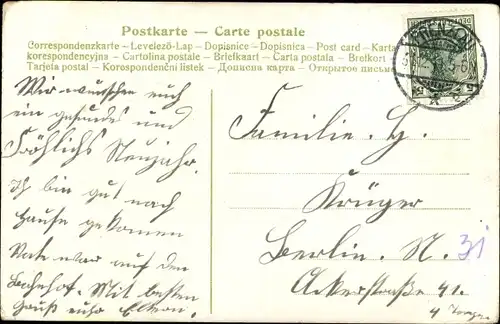 Postkarte — Carte postale
Correspondenzkarte – Levelező-Lap – Dopisnice – Dopisnica – Post card – Karta
korespondencyjna – Cartolina postale – Briefkaart – Carta postala – Brefkort –
Tarjeta postal – Korespondenční listek – Дописна карта – Открытое письмо
Wir wünschen euch
ein gesundes und
Fröhlichs Neujahr.
Ich bin gut nach
Hause gekommen
Vate war auf den
Bahnhof. Mit besten
Gruß eure Eltern.
Familie. H.
Krüger
Berlin. N. 31
Ackerstraße 41.
4